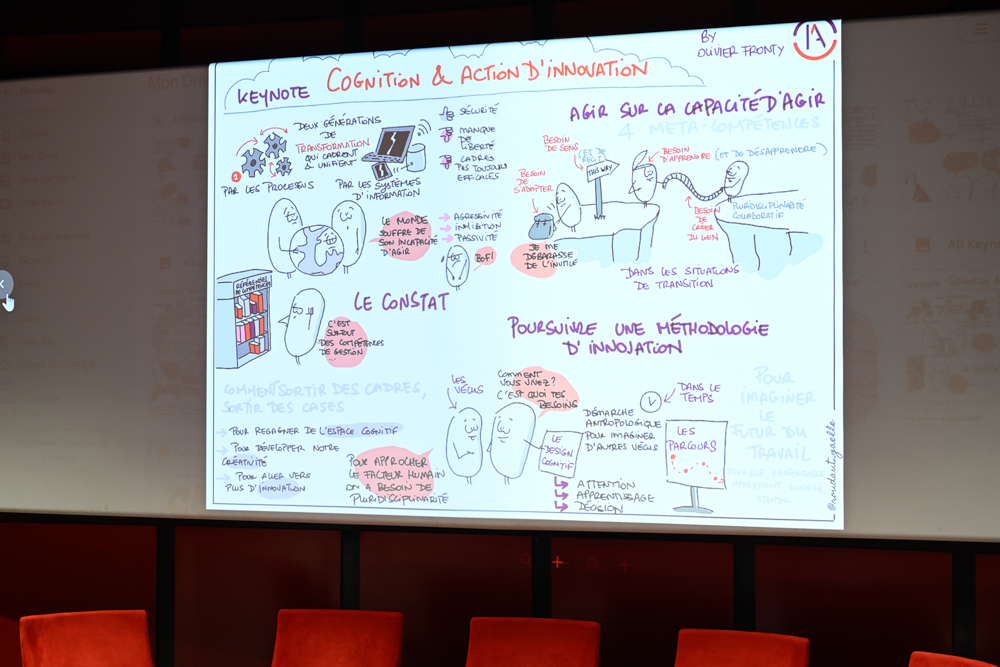 KEYNOTE
COGNITION & ACTION D'INNOVATION
BY
OLIVIER FRONTY
IA
DEUX GÉNÉRATIONS
DE
TRANSFORMATION
QUI CADRENT
& UNIFIENT
1
PAR LES PROCESSUS
PAR LES SYSTÈMES
D'INFORMATION
SÉCURITÉ
MANQUE
DE
LIBERTÉ
CADRES
PAS TOUJOURS
EFFICACES
LE MONDE
SOUFFRE DE
SON INCAPACITÉ
D'AGIR
AGRESSIVITÉ
INHIBITION
PASSIVITÉ
BOF!
RÉFÉRENTIEL
DE COMPÉTENCES
C'EST
SURTOUT
DES COMPÉTENCES
DE GESTION
...
LE CONSTAT
AGIR SUR LA CAPACITÉ D'AGIR
4 MÉTA-COMPÉTENCES
BESOIN
DE SENS
(ET DE
THIS WAY
BESOIN
DE
S'ADAPTER
JE ME
DÉBARASSE
DE L'INUTILE
BESOIN
D'APPRENDRE (ET DE DÉSAPPRENDRE)
BESOIN
DE
CRÉER
DU LIEN
PLURIDISCIPLINARITÉ
COLLABORATIF
DANS LES SITUATIONS
DE TRANSITION
COMMENT SORTIR DES CADRES,
SORTIR DES CASES
POUR REGAGNER DE L'ESPACE COGNITIF
POUR DÉVELOPPER NOTRE
CRÉATIVITÉ
POUR ALLER VERS
PLUS D'INNOVATION
POUR APPROCHER
LE FACTEUR HUMAIN
ON A BESOIN DE
PLURIDISCIPLINARITÉ
POURSUIVRE UNE MÉTHODOLOGIE
D'INNOVATION
LES
VÉCUS
COMMENT
VOUS VIVEZ?
C'EST QUOI TES
BESOINS
LE
DESIGN
COGNITIF
DÉMARCHE
ANTROPOLOGIQUE
POUR IMAGINER
D'AUTRES VÉCUS
ATTENTION
APPRENTISSAGE
DÉCISION
DANS LE
TEMPS
LES
PARCOURS
POUR
IMAGINER
LE
FUTUR DU
TRAVAIL
@roudautgaelle
Mon Dr
AD Keyn